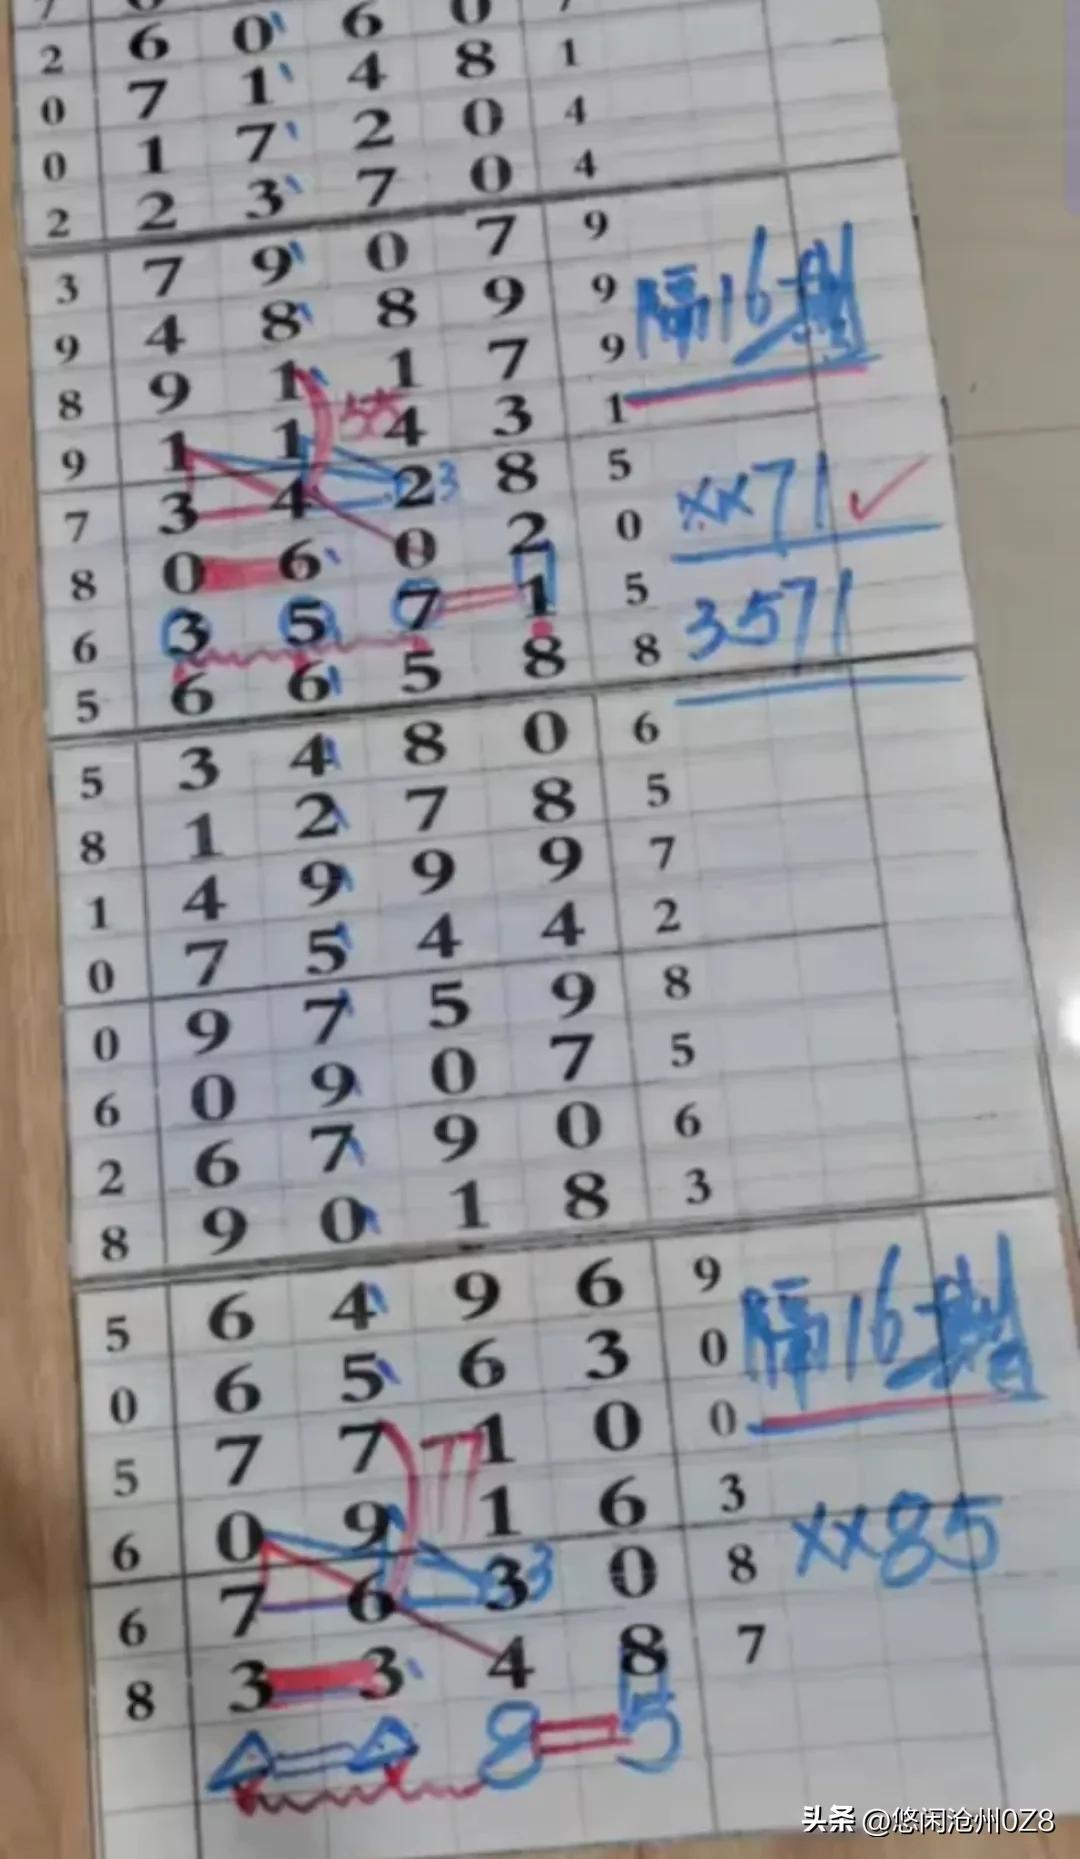 2 6 0 6 0
0 7 1 4 8 1
0 1 7 2 0 4
2 2 3 7 0 4
3 7 9 0 7 9
9 4 8 8 9 9
8 9 1 1 7 9
9 1 1 4 3 1
7 3 4 2 3 8 5
8 0 6 0 2 0
6 3 5 7 1 5
5 6 6 5 8 8
隔16期
××71✓
3571
5 3 4 8 0 6
8 1 2 7 8 5
1 4 9 9 9 7
0 7 5 4 4 2
0 9 7 5 9 8
6 0 9 0 7 5
2 6 7 9 0 6
8 9 0 1 8 3
5 6 4 9 6 9
0 6 5 6 3 0
5 7 7 77 1 0 0
6 0 9 1 6 3
6 7 6 3 3 0 8
8 3 3 4 8 7
8 5
隔16期
××85
头条 @悠闲沧州0Z8